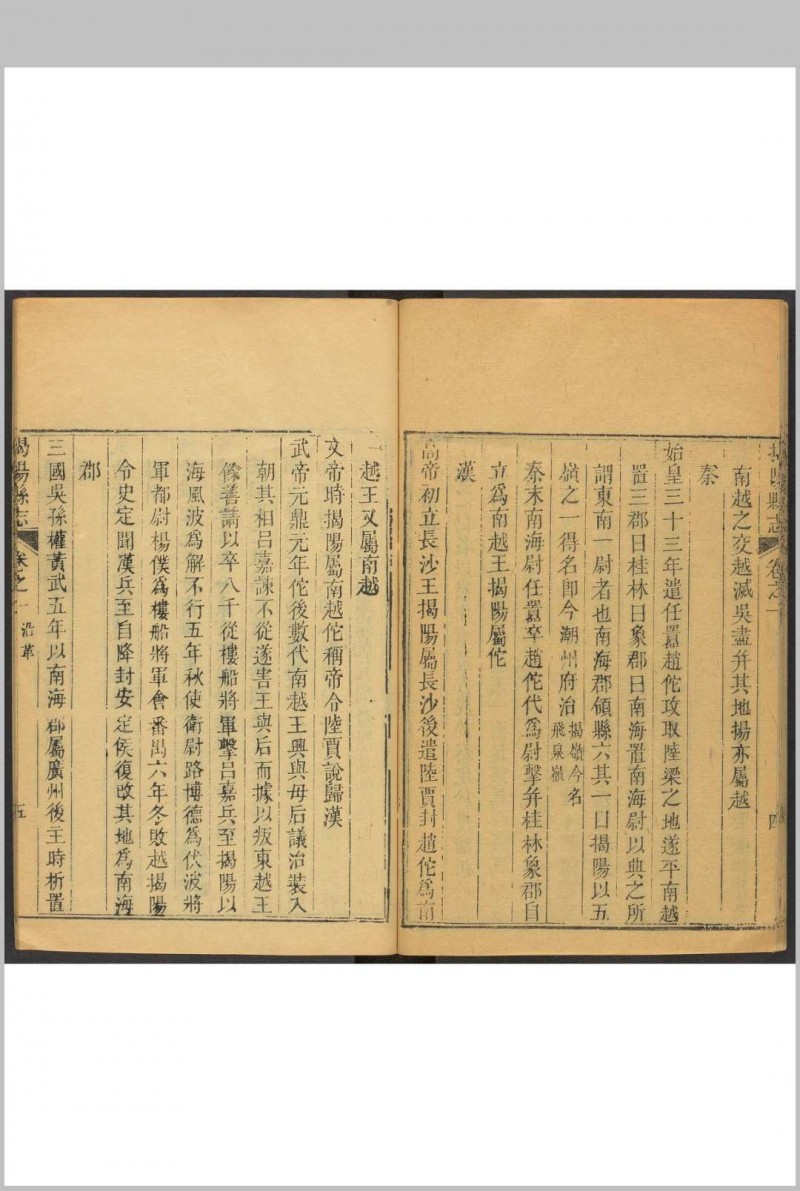 揭陽縣志 卷之一 四
南越之交越滅吳盡并其地揚亦屬越
秦
始皇三十三年遣任囂趙佗攻取陸梁之地遂平南越
置三郡曰桂林曰象郡曰南海置南海尉以典之所
謂東南一尉者也南海郡領縣六其一曰揭陽以五
嶺之一得名卽今潮州府治揭嶺今名飛泉嶺
秦末南海尉任囂卒趙佗代爲尉擊并桂林象郡自
立爲南越王揭陽屬佗
漢
高帝初立長沙王揭陽屬長沙後遣陸賈封趙佗爲南
越王又屬南越
文帝時揭陽屬南越佗稱帝令陸賈說歸漢
武帝元鼎元年佗後數代南越王興與毋后議治裝入
朝其相呂嘉諫不從遂害王與后而據以叛東越王
餘善請以卒八千從樓船將軍擊呂嘉兵至揭陽以
海風波爲解不行五年秋使衛尉路博德爲伏波將
軍都尉楊僕爲樓船將軍會番禺六年冬敗越揭陽
令史定聞漢兵至自降封安定侯復改其地爲南海
郡
三國吳孫權黃武五年以南海郡屬廣州後主時析置
揭陽縣志 卷之一 沿革 五